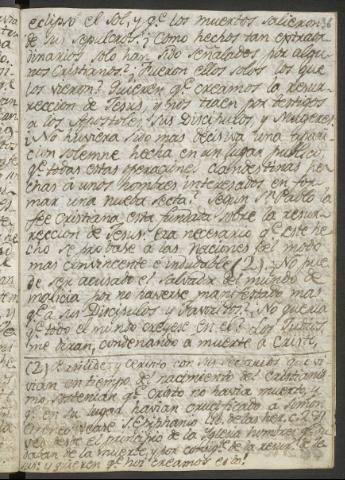 eclipsó el Sol, y q.e los muertos salieron 36
de sus sepulcros? ¿Como hechos tan extraor
dinarios solo han sido señalados por algu-
nos Cristianos? ¿Fueron ellos solos los que
los vieron? Quieren q.e creamos la resur-
reccion de Jesus, y nos traen por testigos
a los Apostoles, sus Discipulos y Mugeres.
¿No huviera sido mas decisiva una aparic-
cion solemne hecha en un lugar publico,
q.e todas estas operaciones clandestinas he-
chas a unos hombres interesados en for-
mar una nueva secta? Segun S. Pablo la
fee Cristiana está fundada sobre la resur-
reccion de Jesus: era necesario q.e este he-
cho se probase a las naciones del modo
mas convincente e indudable (2). ¿No pue-
de ser acusado el Salvador del mundo de
malicia por no haverse manifestado mas
q.e a sus Discipulos y Favoritos? ¿No queria
q.e todo el mundo creyese en el? Los Judios,
me diran, condenando a muerte a Cristo,
(2) y Cerinto con sus sectarios que vi-
vian en tiempo del nacimiento del Cristianis-
mo sostenian q.e Cristo no havia muerto, y
q.e en su lugar havian crucificado a Simon
Cirineo vease S. Epiphanio
desde el principio de la Iglesia hombres q.e du-
daban de la muerte, y por consig.te de la resur.n de Je-
sus: y quieren q.e nos creamos esto!